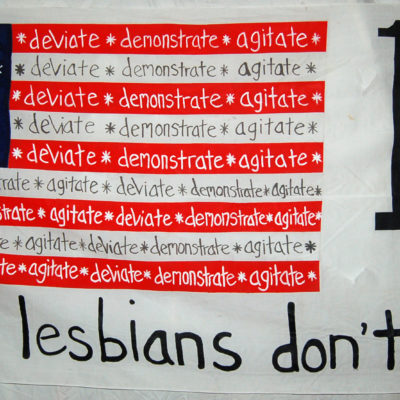 * deviate * demonstrate * agitate *
* deviate * demonstrate * agitate *
* deviate * demonstrate * agitate *
* deviate * demonstrate * agitate *
* deviate * demonstrate * agitate *
* deviate * demonstrate * agitate *
* agitate * deviate * demonstrate * agitate *
* agitate * deviate * demonstrate * agitate *
* agitate * deviate * demonstrate * agitate *
lesbians don't